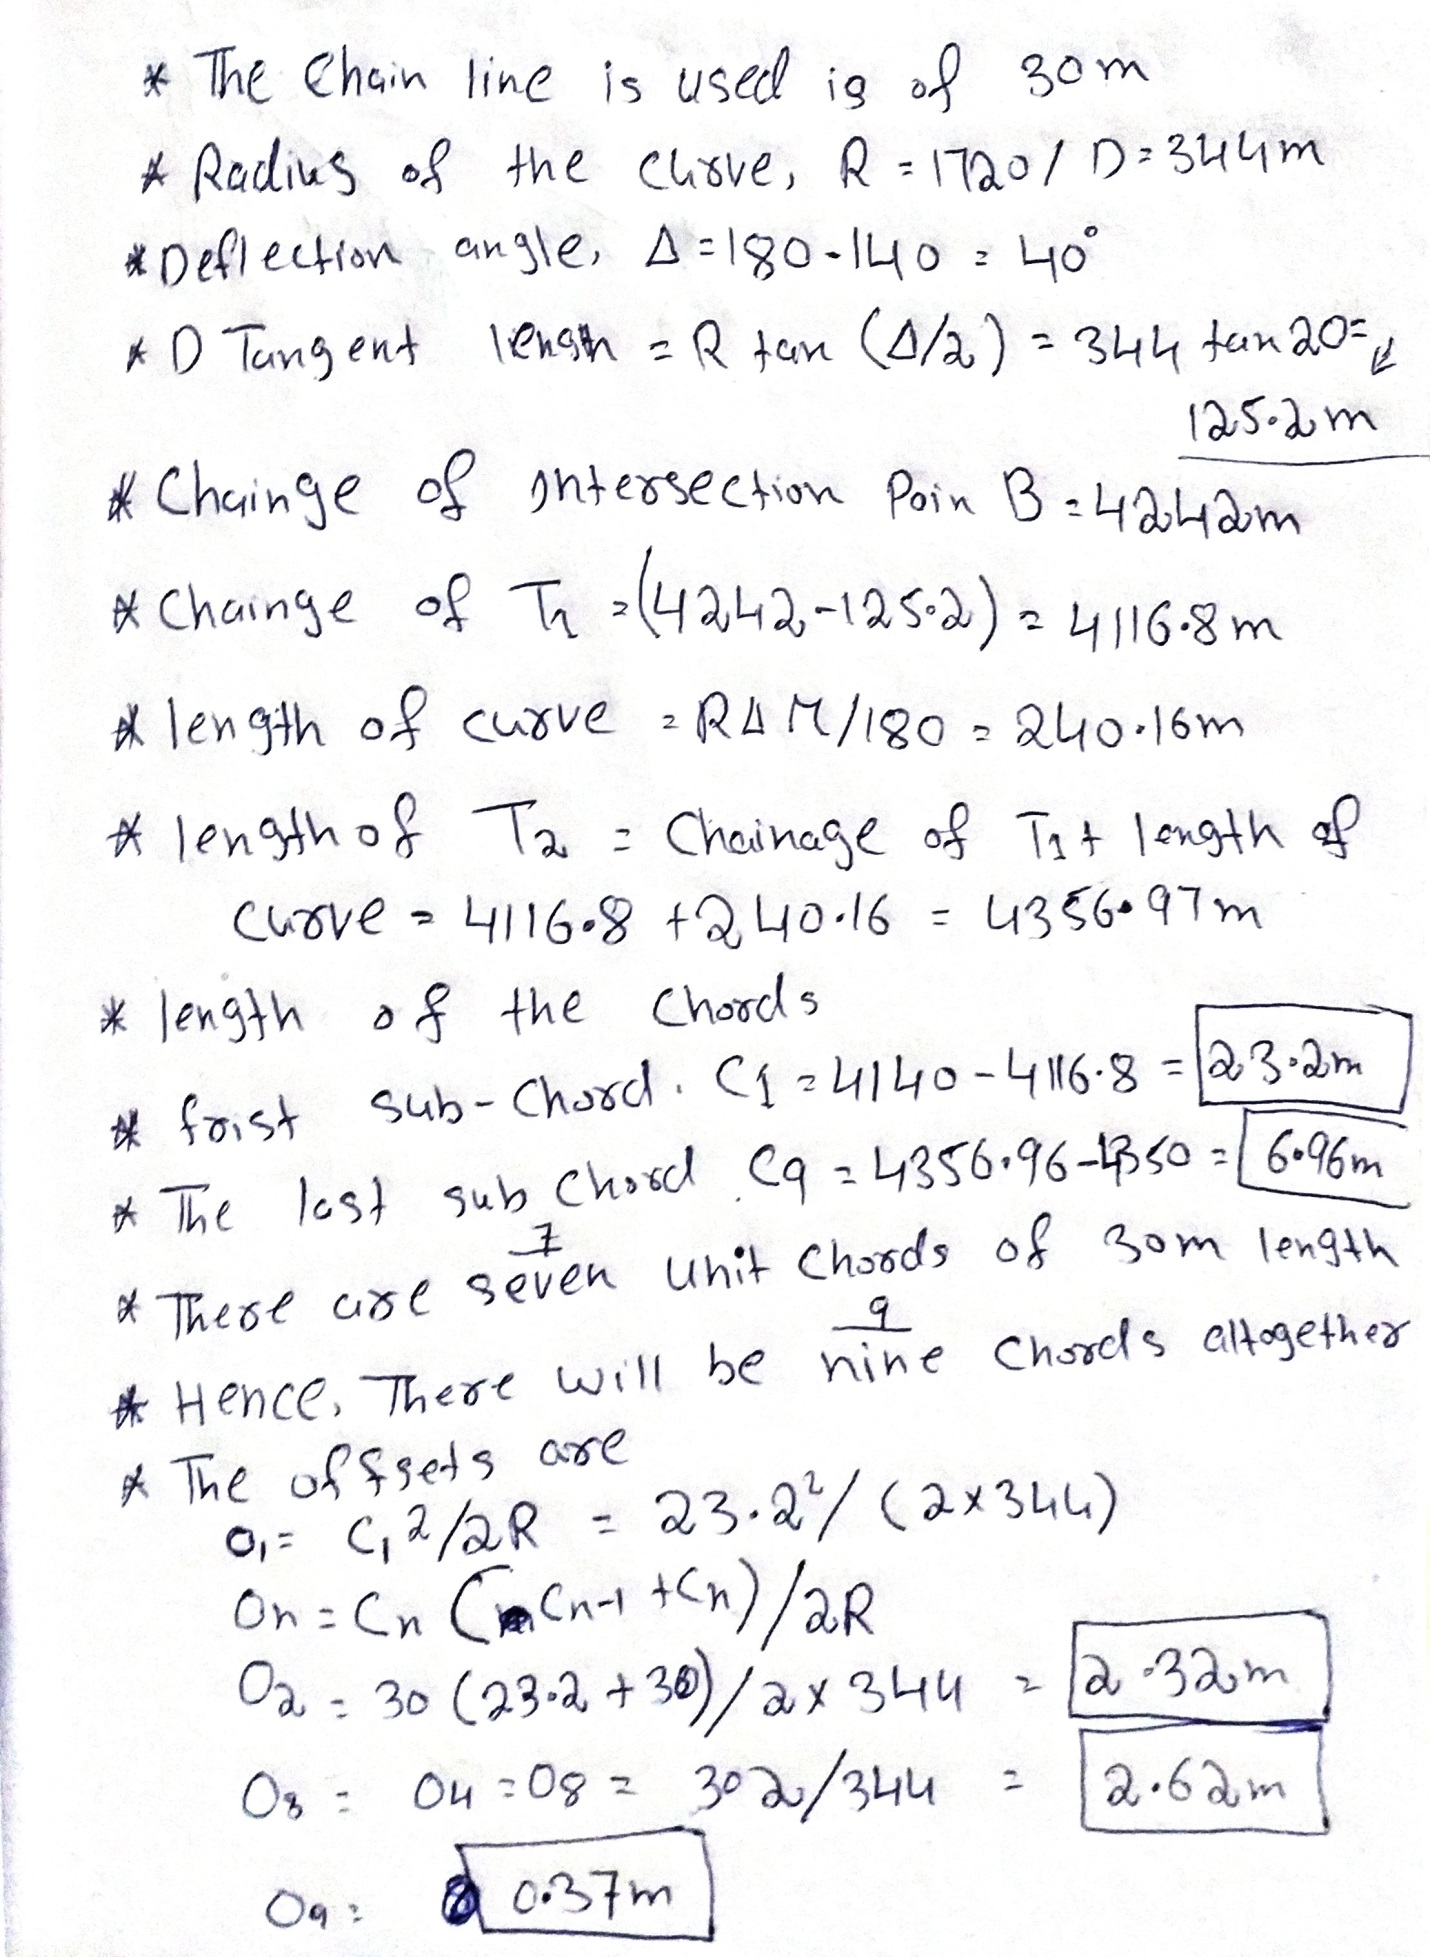 * The Chain line is used is of 30m
* Radius of the curve, R = 1720 / D = 344m
* Deflection angle, Δ = 180 - 140 = 40°
* D Tangent length = R tan (Δ/2) = 344 tan 20 = ↙
125.2m
* Chainge of Intersection Poin B = 4242m
* Chainge of T1 = (4242 - 125.2) = 4116.8m
* length of curve = RΔπ/180 = 240.16m
* length of T2 = Chainage of T1 + length of
curve = 4116.8 + 240.16 = 4356.97m
* length of the Chords
* frist sub-Chord. C1 = 4140 - 4116.8 = 23.2m
* The last sub Chord C9 = 4356.96 - 4350 = 6.96m
7
* There are seven unit Chords of 30m length
9
* Hence, There will be nine Chords altogether
* The offsets are
O1 = C1²/2R = 23.2² / (2x344)
On = Cn (Cn-1 + Cn)/2R
O2 = 30 (23.2 + 30)/2 x 344 = 2.32m
O3 = O4 = O8 = 302/344 = 2.62m
O9 = 0.37m